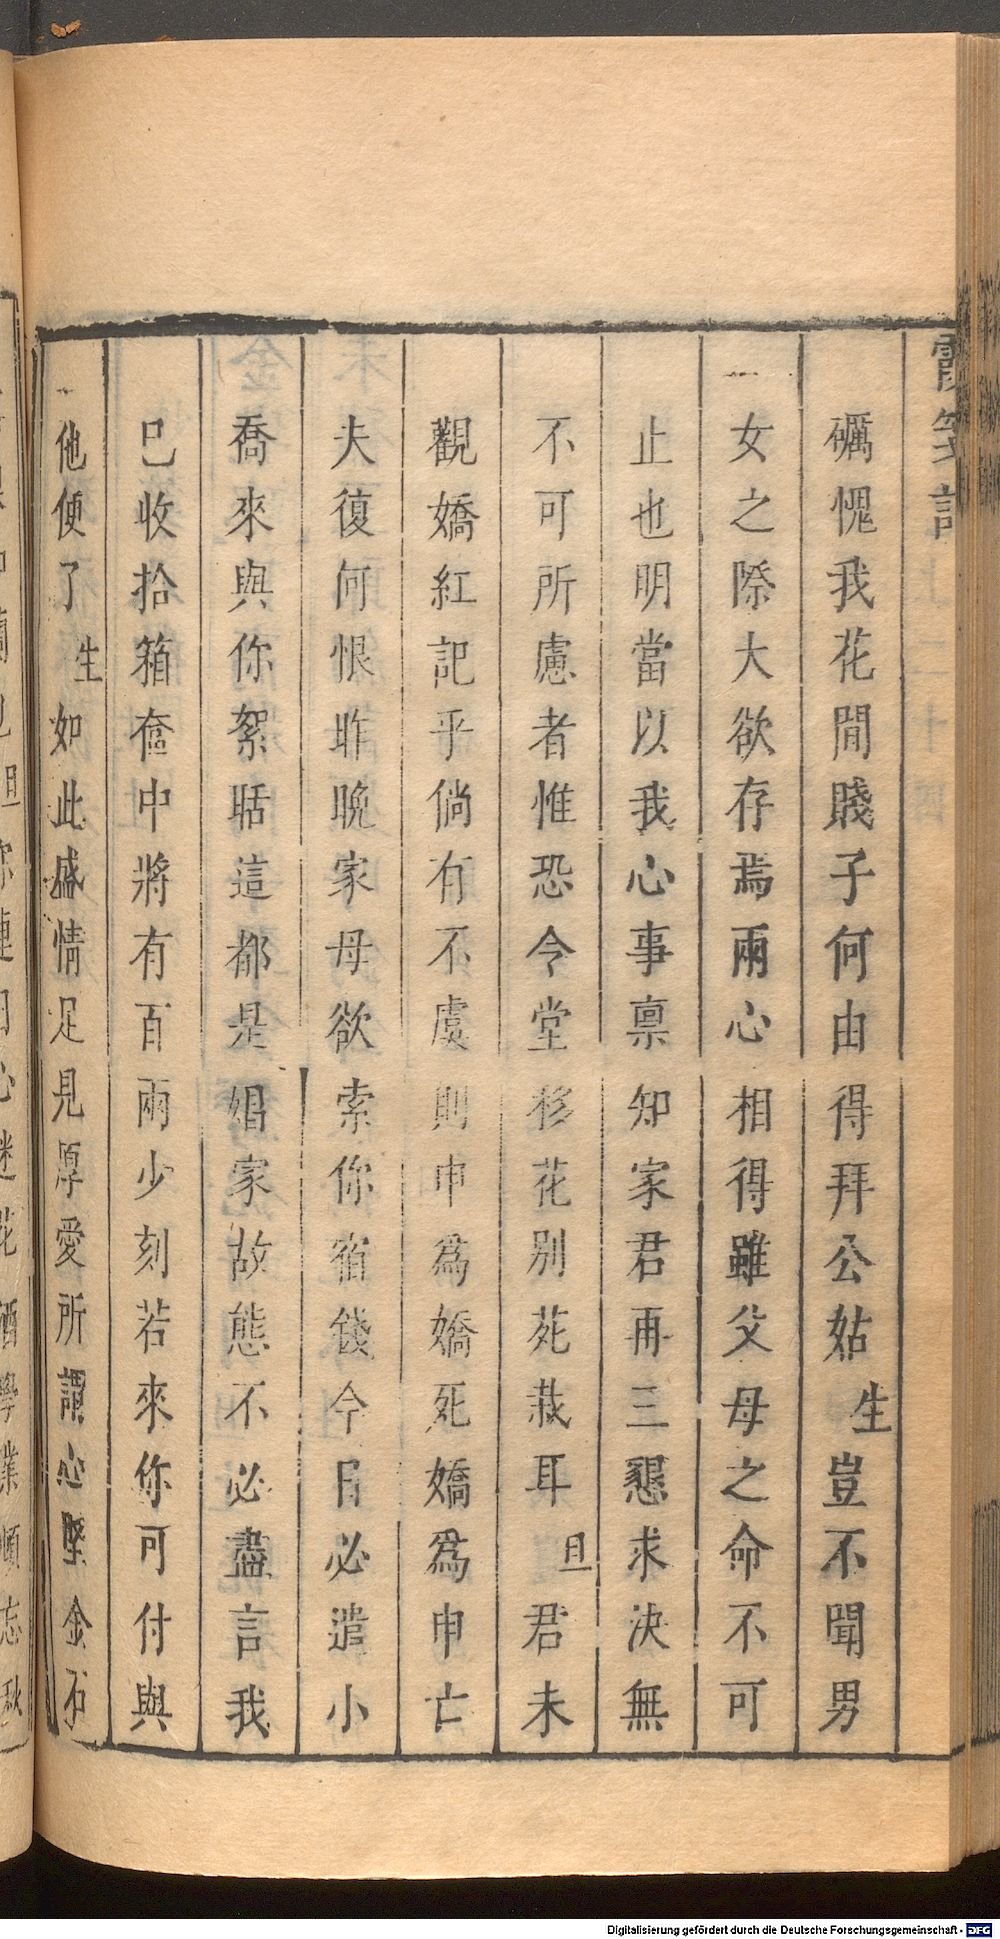 霞箋記
礪愧我花間賤子何由得拜公姑生豈不聞男
女之際大欲存焉兩心相得雖父母之命不可
止也明當以我心事禀知家君再三懇求決無
不可所慮者惟恐令堂移花別苑栽耳旦君未
觀嬌紅記乎倘有不虞則申為嬌死嬌為申亡
夫復何恨昨晚家母欲索你宿錢今日必遣小
喬來與你絮聒這都是娼家故態不必盡言我
巳收拾箱奩中將有百兩少刻若來你可付與
他便了生如此盛情足見厚愛所謂心堅金石
旦你連日心迷花酒學業頓忘秋
Digitalisierung gefördert durch die Deutsche Forschungsgemeinschaft - DFG